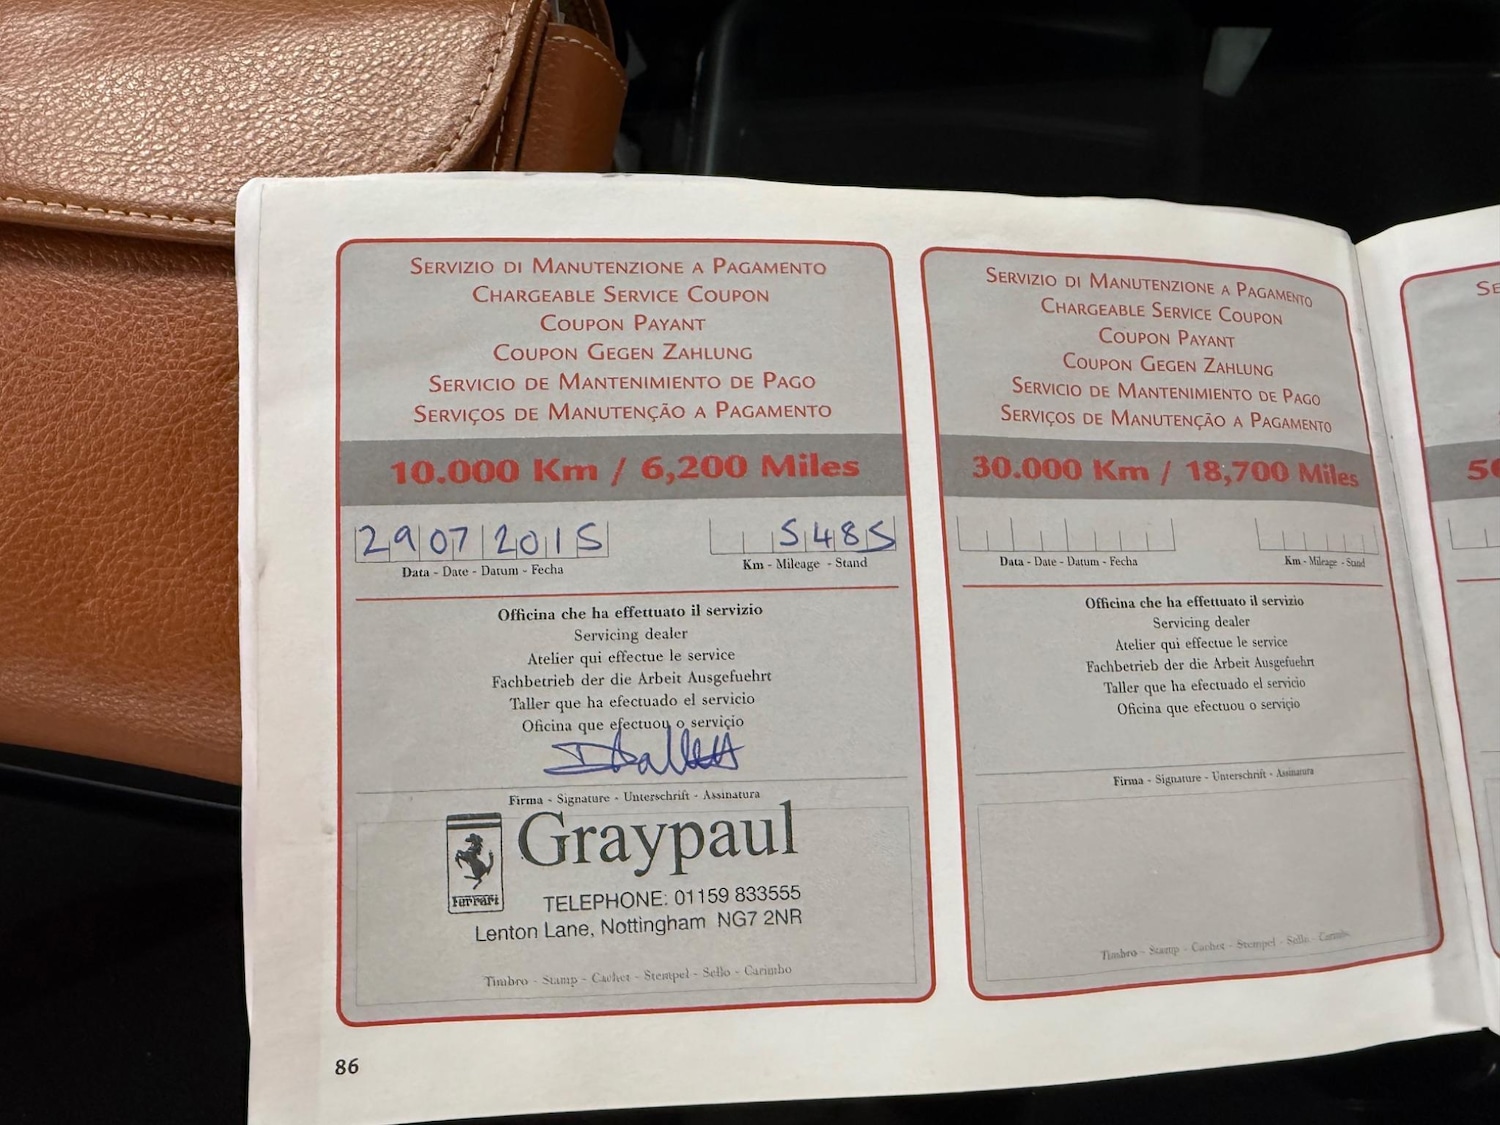 SERVIZIO DI MANUTENZIONE A PAGAMENTO
CHARGEABLE SERVICE COUPON
COUPON PAYANT
COUPON GEGEN ZAHLUNG
SERVICIO DE MANTENIMIENTO DE PAGO
SERVIÇOS DE MANUTENÇÃO A PAGAMENTO
10.000 Km / 6,200 Miles
29 07 2015 5485
Data - Date - Datum - Fecha Km - Mileage - Stand
Officina che ha effettuato il servizio
Servicing dealer
Atelier qui effectue le service
Fachbetrieb der die Arbeit Ausgefuehrt
Taller que ha efectuado el servicio
Oficina que efectuou o serviçio
Firma - Signature - Unterschrift - Assinatura
Ferrari
Graypaul
TELEPHONE: 01159 833555
Lenton Lane, Nottingham NG7 2NR
Timbro - Stamp - Cachet - Stempel - Sello - Carimbo
86
SERVIZIO DI MANUTENZIONE A PAGAMENTO
CHARGEABLE SERVICE COUPON
COUPON PAYANT
COUPON GEGEN ZAHLUNG
SERVICIO DE MANTENIMIENTO DE PAGO
SERVIÇOS DE MANUTENÇÃO A PAGAMENTO
30.000 Km / 18,700 Miles
Data - Date - Datum - Fecha Km - Mileage - Stand
Officina che ha effettuato il servizio
Servicing dealer
Atelier qui effectue le service
Fachbetrieb der die Arbeit Ausgefuehrt
Taller que ha efectuado el servicio
Oficina que efectuou o serviçio
Firma - Signature - Unterschrift - Assinatura
Timbro - Stamp - Cachet - Stempel - Sello - Carimbo